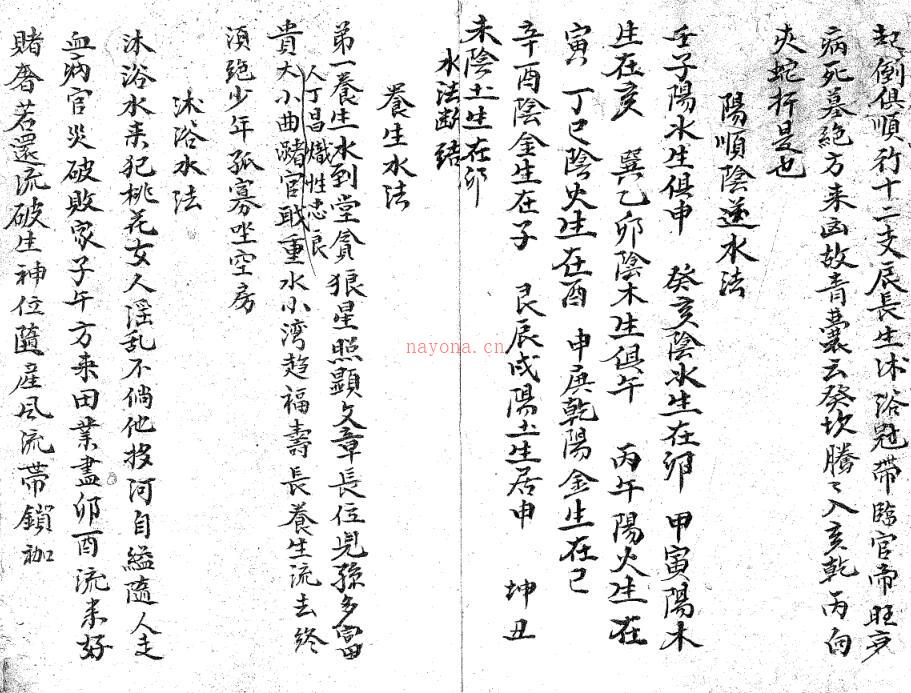 起倒俱順行十二支辰長生沐浴冠帶臨官帝旺衰
病死墓絶方来凶故青囊云癸坎騰々入亥乾丙向
夾蛇行是也
陽順陰逆水法
壬子陽水生俱申 癸亥陰水生在卯 甲寅陽木
生在亥 巽乙卯陰木生俱午 丙午陽火生在
寅 丁巳陰火生在酉 申庚乾陽金生在巳
辛酉陰金生在子 艮辰戌陽土生居申 坤丑
未陰土生在卯
水法断结
養生水法
第一養生水到堂貪狼星照顯文章長位兒孫多富
人丁昌熾性忠良
貴大小曲瀦官職重水小湾趋福壽長養生流去終
須絶少年孤寡坐空房
沐浴水法
沐浴水来犯桃花女人淫乱不倘他投河自縊隨人走
血病官災破敗家子午方来田業盡卯酉流来好
賭奢若還流破生神位隨産风流帶鎖枷
nayona.cn